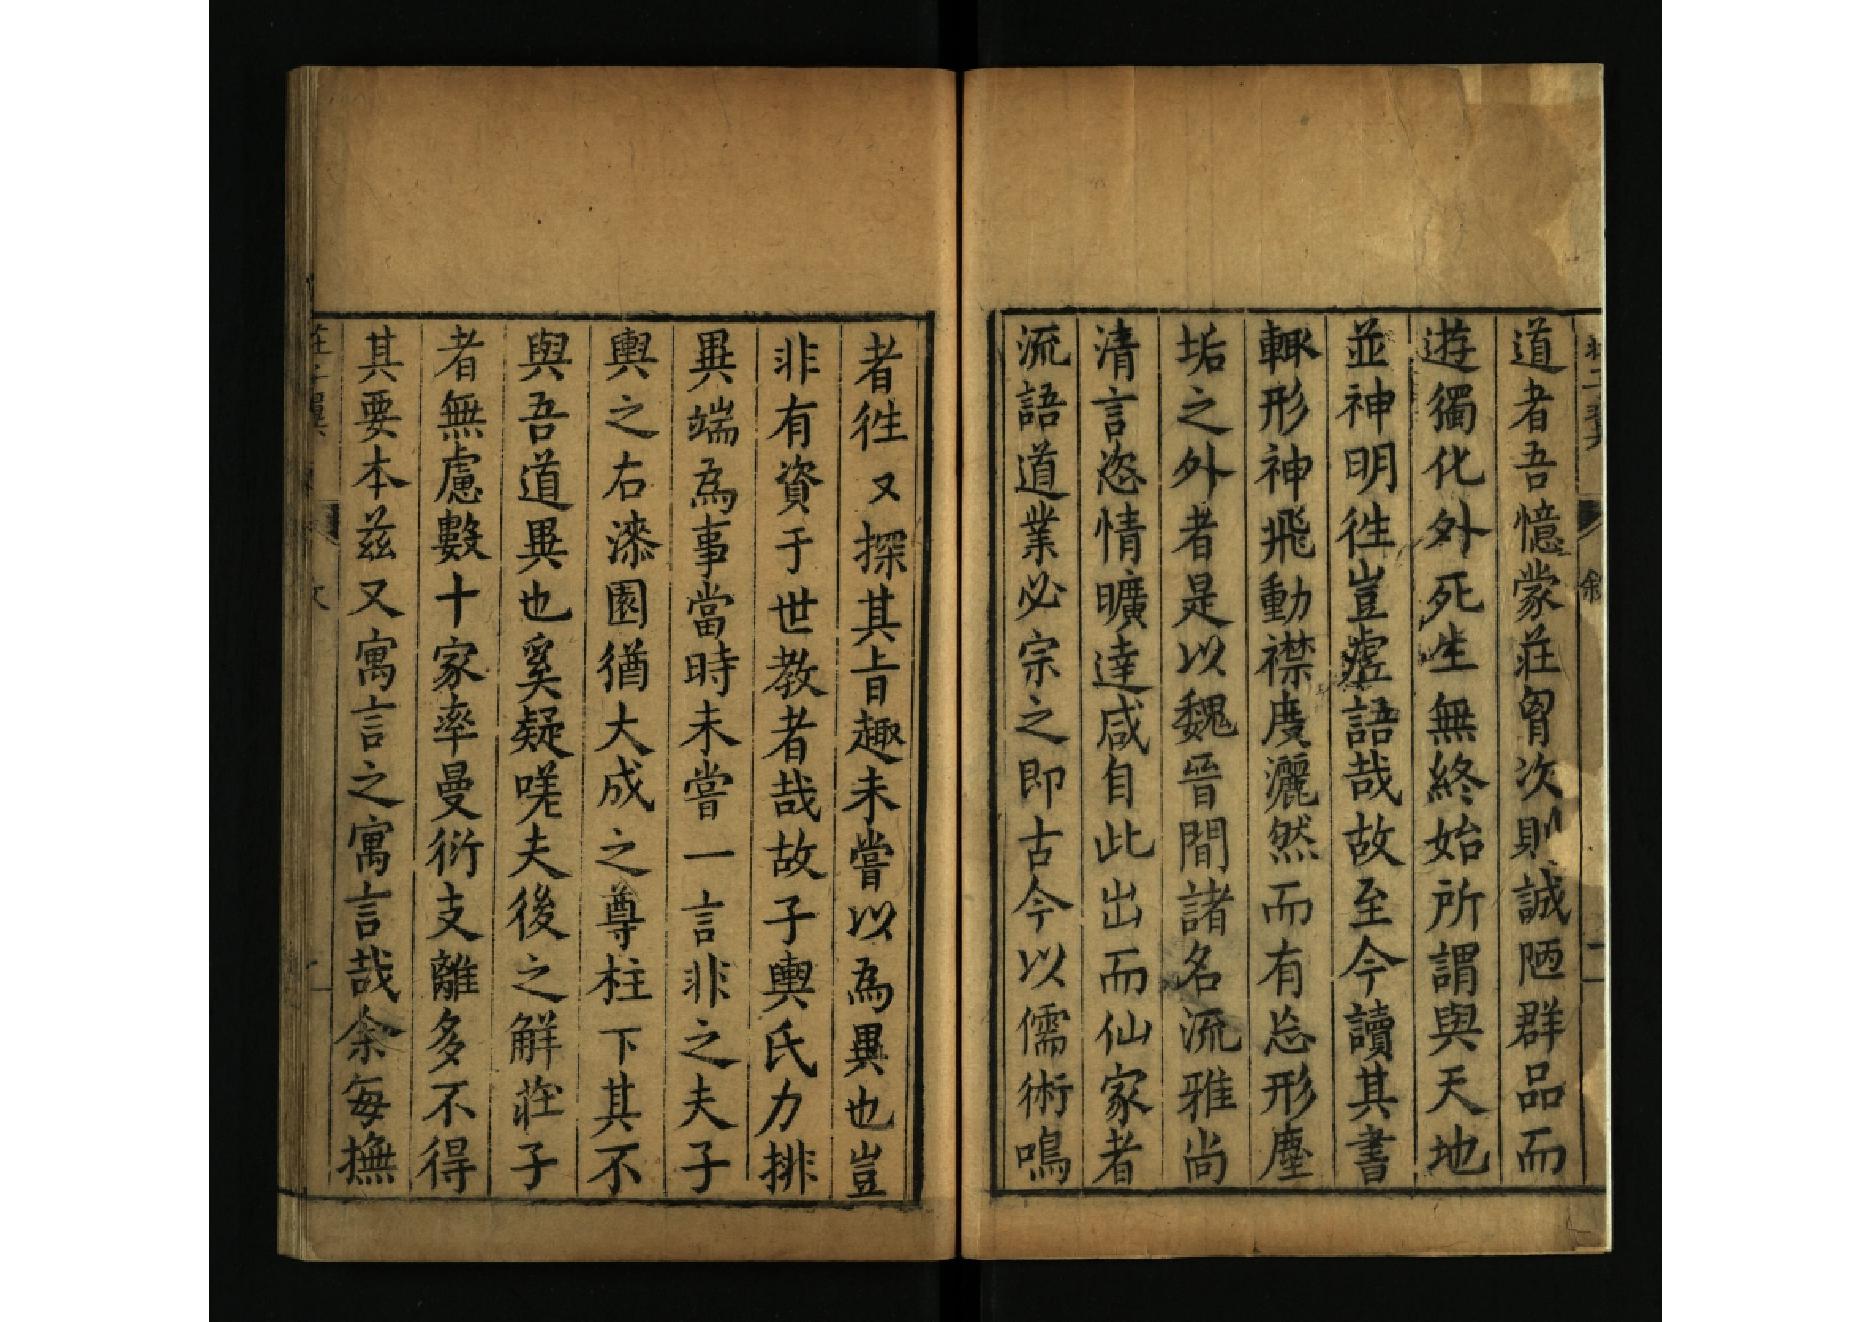 道者吾憶蒙莊胷次則誠陋群品而
遊獨化外死生無終始所謂與天地
並神明徃豈虛語哉故至今讀其書
輙形神飛動襟度灑然而有忘形塵
垢之外者是以魏晉間諸名流雅尚
清言恣情曠達咸自此出而仙家者
流語道業必宗之即古今以儒術鳴
者徃又探其旨趣未嘗以為異也豈
非有資于世教者哉故子輿氏力排
異端為事當時未嘗一言非之夫子
輿之右漆園猶大成之尊柱下其不
與吾道異也奚疑嘆夫後之解莊子
者無慮數十家率曼衍支離多不得
其要本兹又寓言之寓言哉余每撫